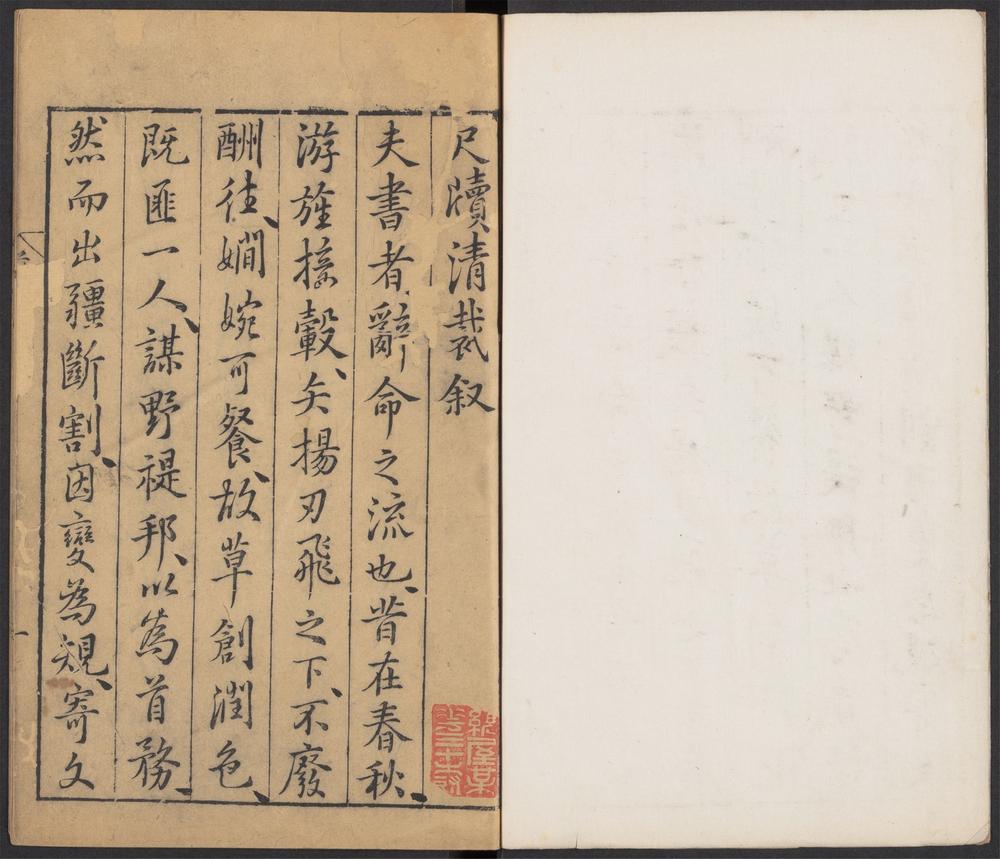 尺牘清裁叙
夫書者、辭命之流也、昔在春秋、
游旌接轂、矢揚刃飛之下、不廢
酬往、嫺婉可餐、故草創潤色、
既匪一人、謀野禔邦、以為首務、
然而出疆斷割、因變為規、寄文